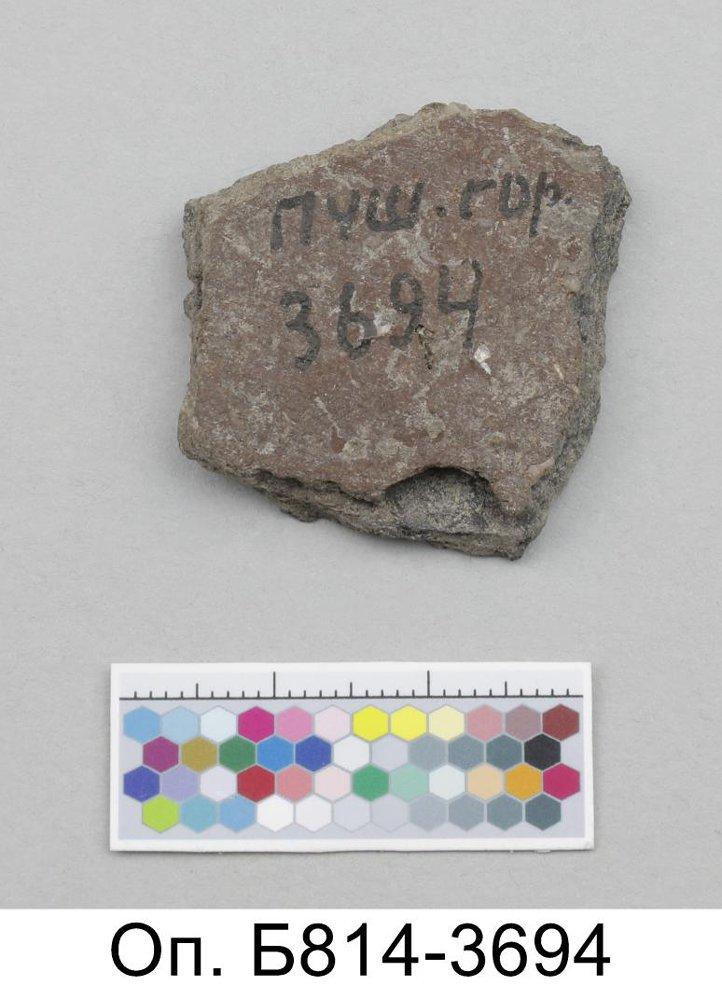 Пуш. гор.
3694
Оп. Б814-3694